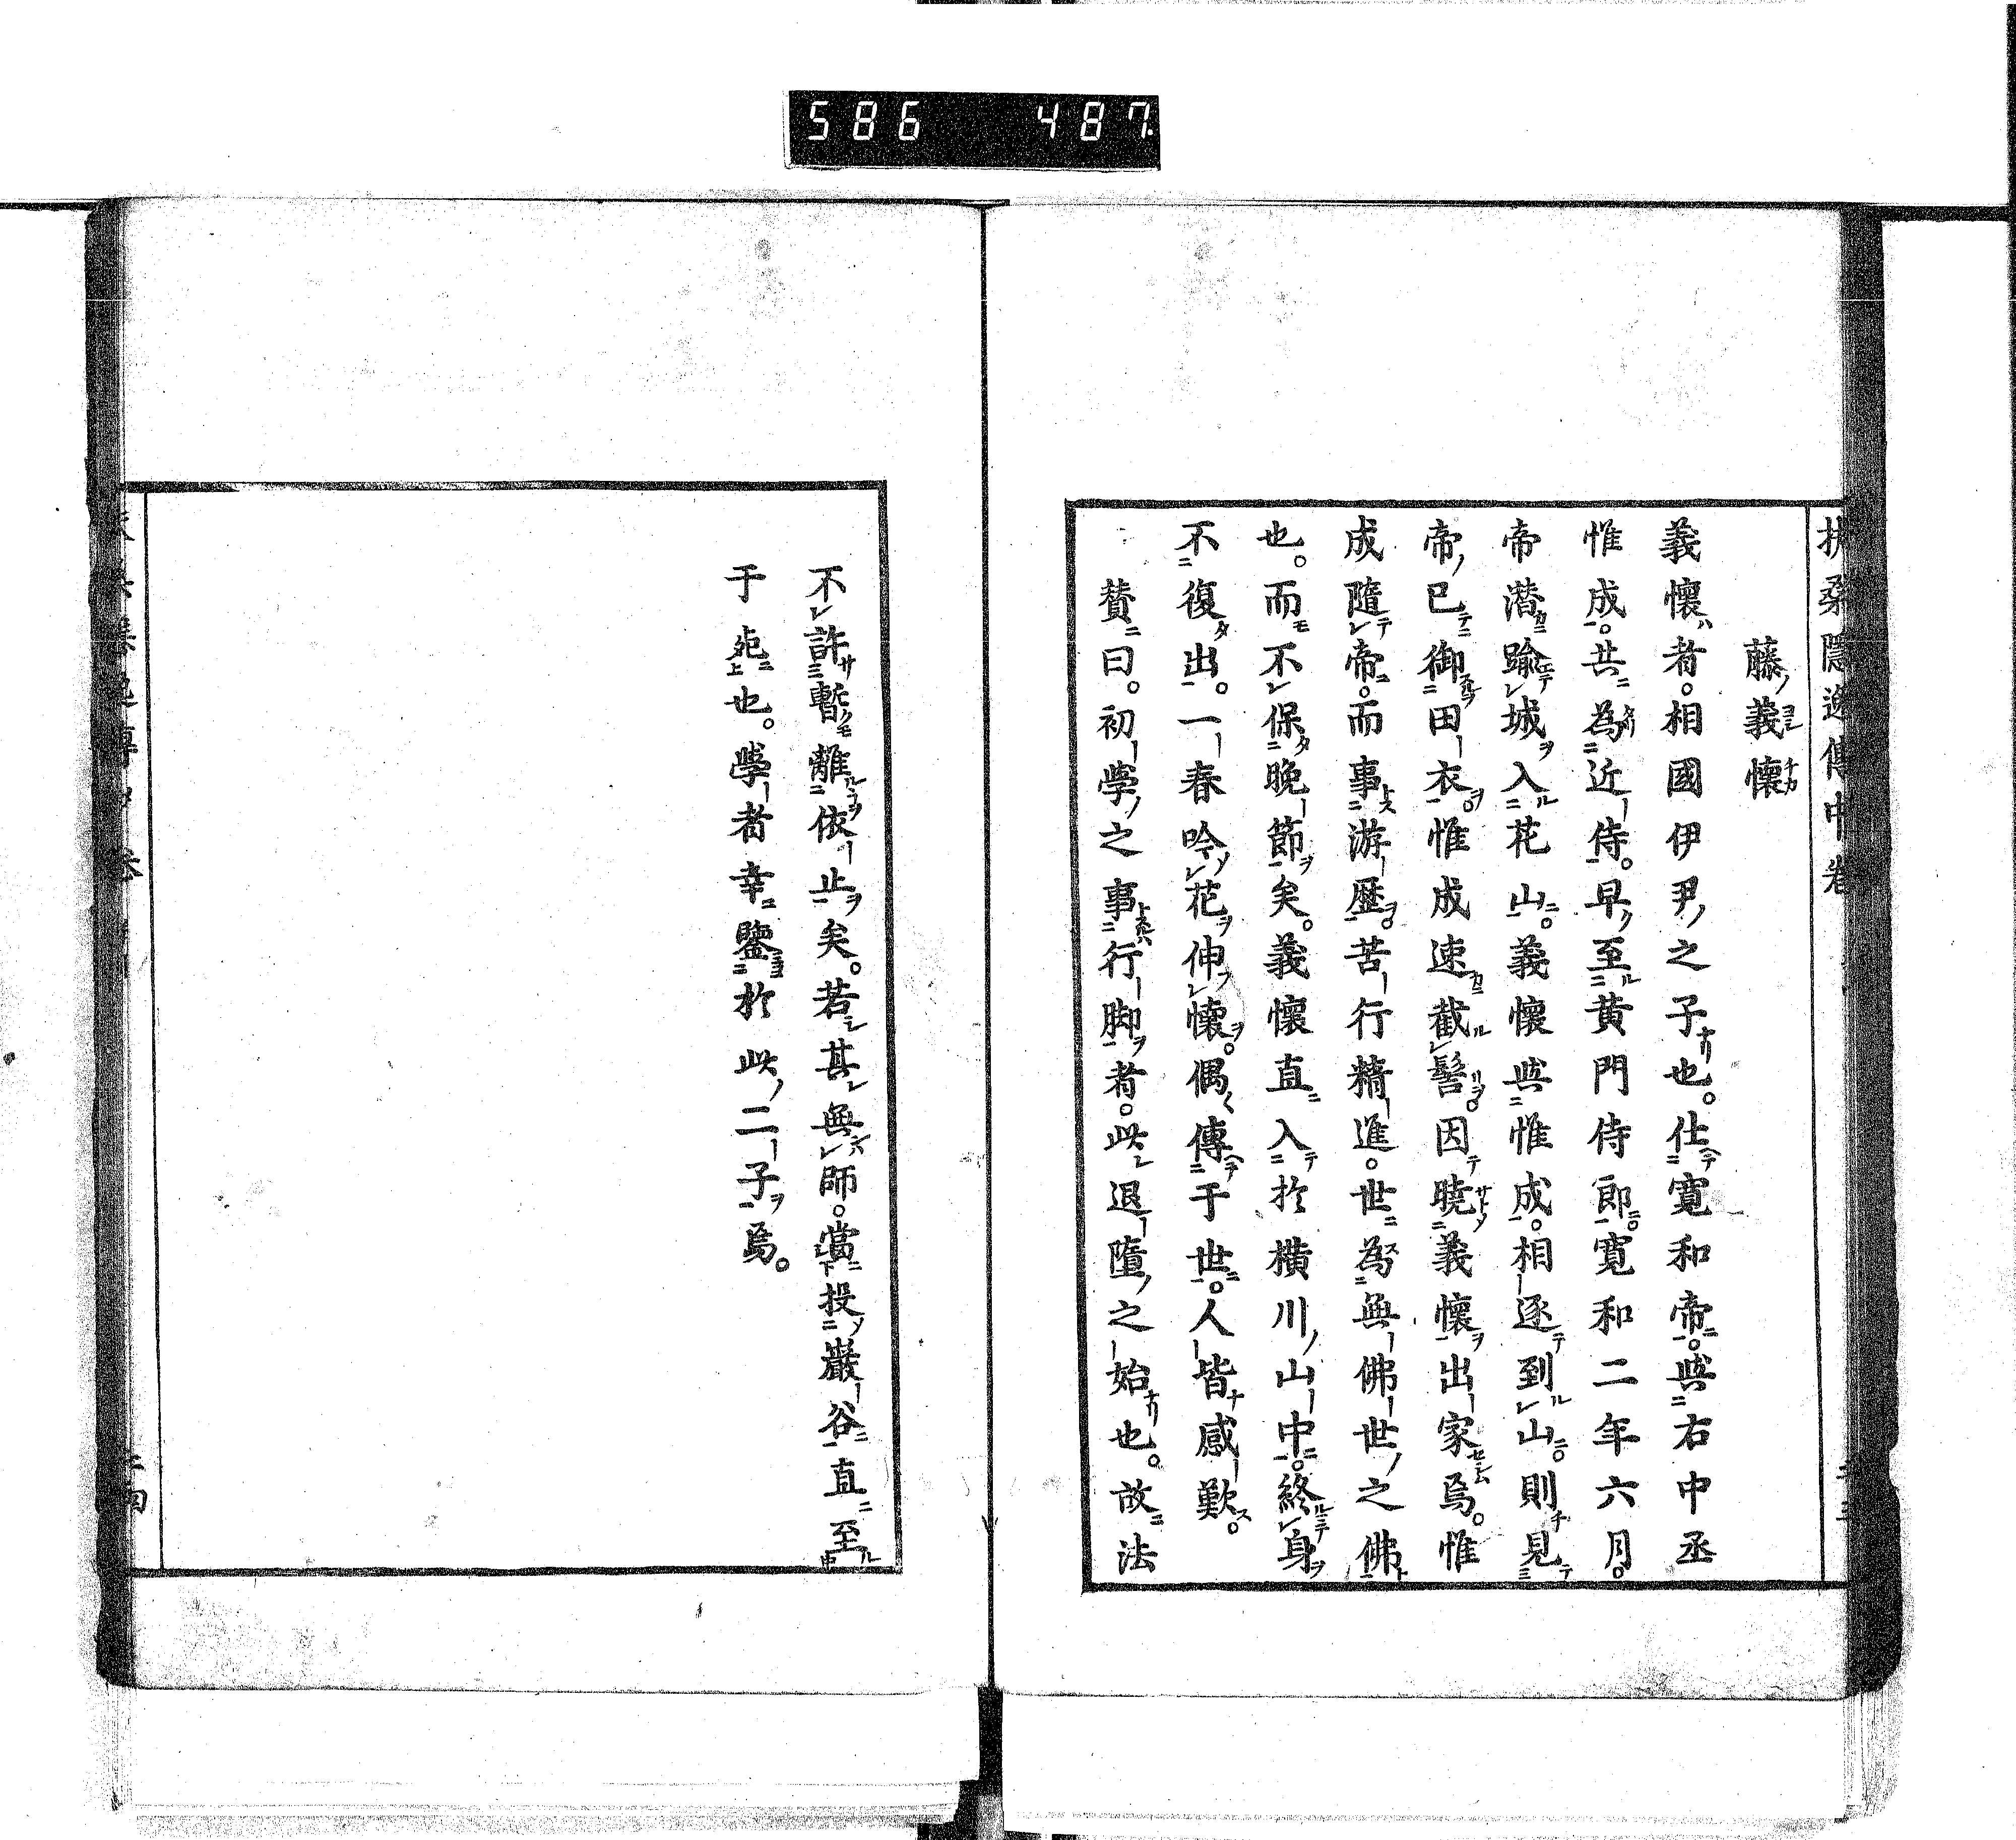 586 487
扶桑隱逸傳中卷
藤義懷
義懷者。相國伊尹之子也。仕寬和帝。與右中丞
惟成。共為近侍。早至黄門侍郎。寬和二年六月。
帝潛踰城入花山。義懷與惟成。相逐到山。則見
帝已御田衣。惟成速截髻。因曉義懷出家焉。惟
成隨帝。而事游歷。苦行精進。世為無佛世之佛
也。而不保晚節矣。義懷直入於橫川山中。終身
不復出。一春吟花伸懷。偶傳于世。人皆感歎。
賛曰。初學之事行脚者。此退墮之始也。故法
不許暫離依止矣。若其無師。當投巖谷直至
于死也。學者幸鑒於此二子焉。